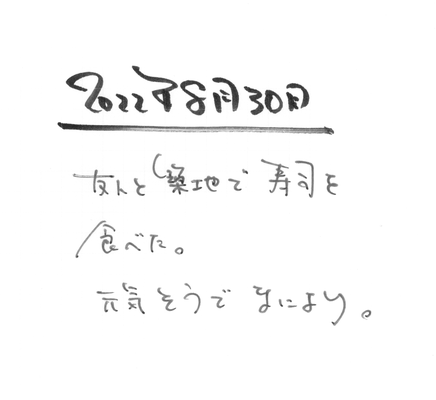 2022年8月30日
友人と築地で寿司を
食べた。
元気そうでなにより。